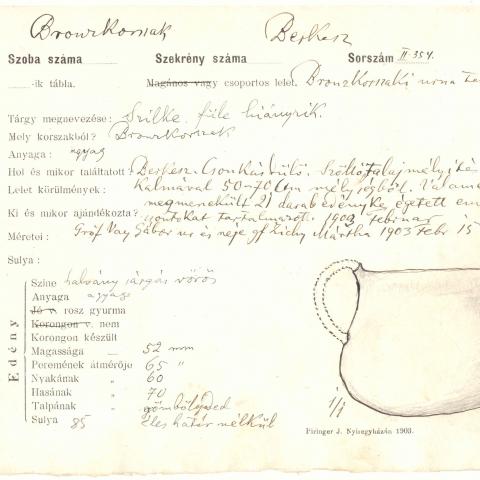 Bronzkorszak Berkesz
Szoba száma Szekrény száma Sorszám II-354.
-ik tábla. Magános vagy csoportos lelet. Bronzkorszaki urna te
Tárgy megnevezése: Szilke. füle hiányzik.
Mely korszakból? Bronzkorszak
Anyaga: agyag
Hol és mikor találtatott? Berkesz. Csonkásdülő. Szőllőtalajmélyité
Lelet körülmények: kalmával 50-70 Ctm mélységből. Valame
megmenekült 21 darab edényke égetett em
Ki és mikor ajándékozta? csontokat tartalmazott. 1903 Februar
Méretei: Gróf Vay Gábor ur és neje gf Zichy Mártha 1903 Febr 15
Sulya:
Edény
Szine halvány sárgás vörös
Anyaga agyag
Jó v. rosz gyurma
Korongon v. nem
Korongon készült
Magassága 52 mm
Peremének átmérője 65 "
Nyakának " 60
Hasának " 70
Talpának " gömbölyded
Sulya 85 éles határ nélkül
1/1
Piringer J. Nyiregyházán 1903.